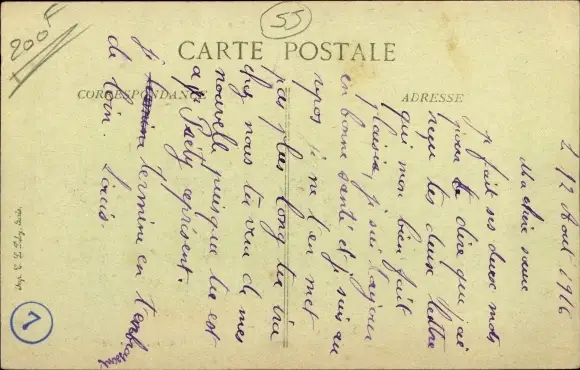 200F
55
CARTE POSTALE
CORRESPONDANCE
ADRESSE
12 Aout 1916
Ma chère sœur
je fait ses deux mots
pour te dire que j'ai
reçu tes deux lettre
qui mon bien fait
plaisir je sui toujour
en bonne santé et je suis au
repos je ne t'en met
pas plus long tu ira
chez nous tu vera de mes
nouvelle puisque tu est
a aprisent.
je termine en t'embrassant
de loin. Louis.
7